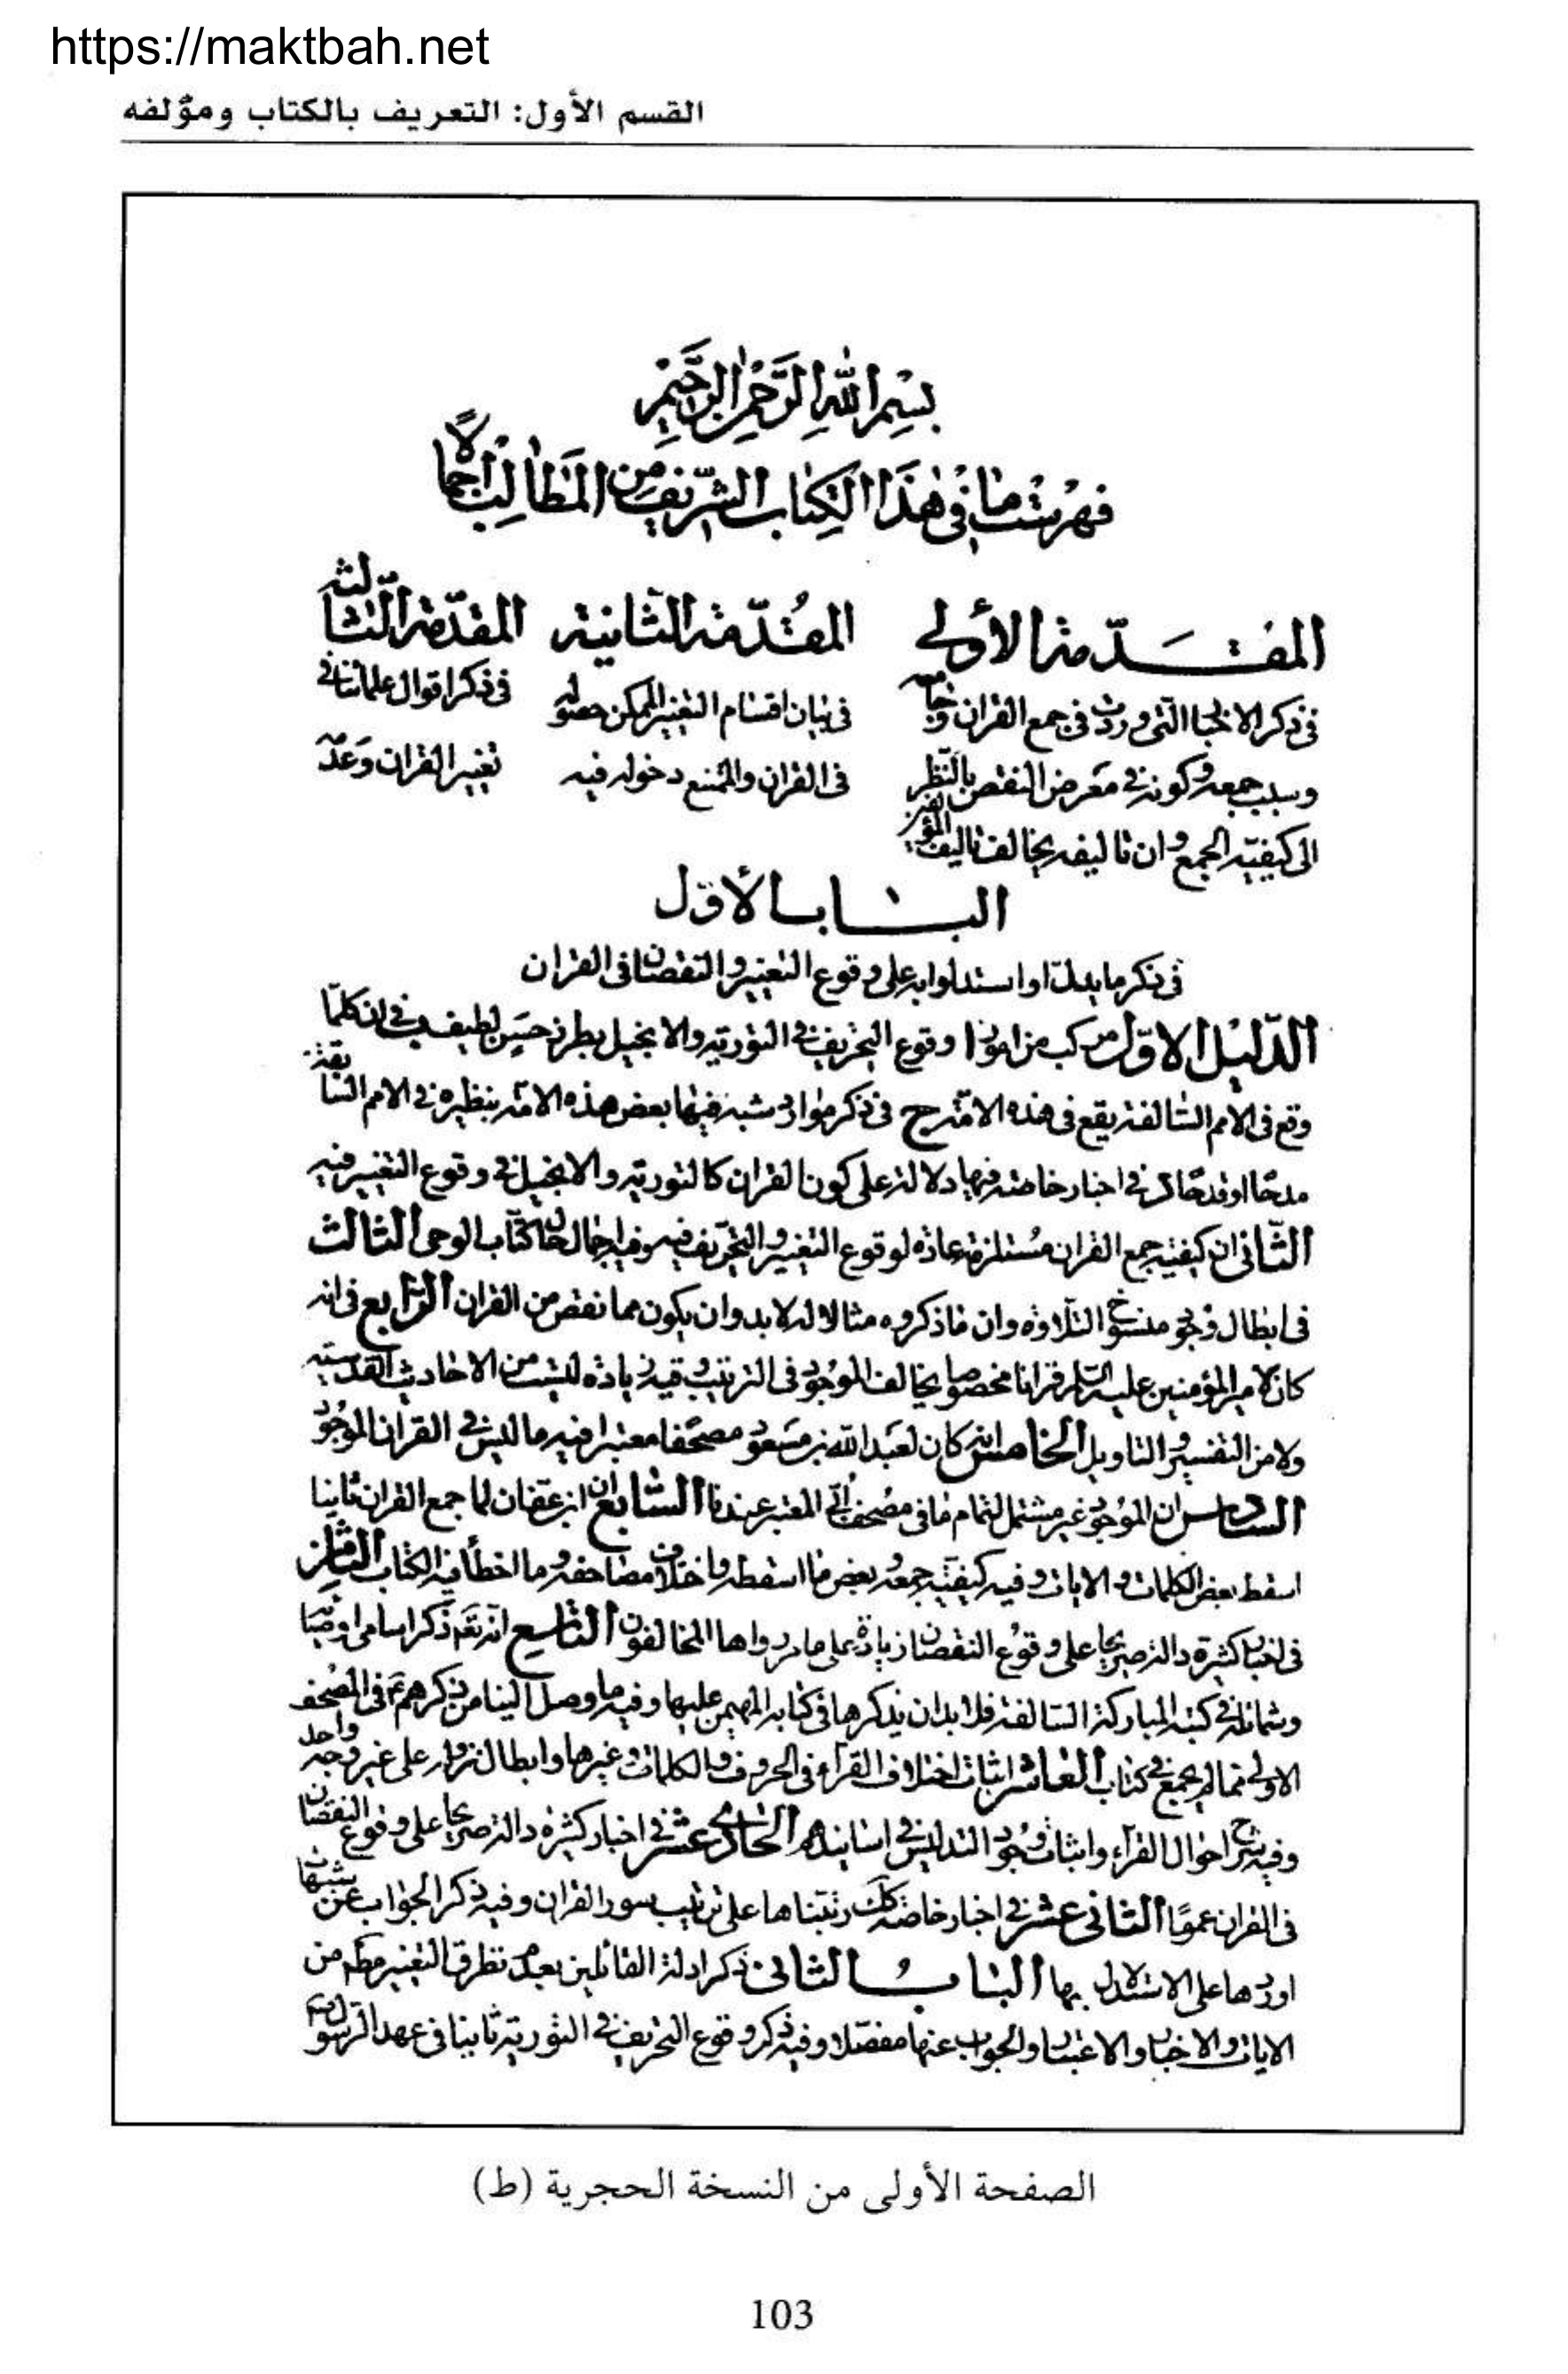 https://maktbah.net
القسم الأول: التعريف بالكتاب ومؤلفه
بسم الله الرحمن الرحيم
فهرست ما فى هذا الكتاب الشريف من المطالب اجمالا
المقدمة الأولى
فى ذكر الاخبار التى وردت فى جمع القران وجامعه
وسبب جمعه وكونه فى معرض النقص بالنظر
الى كيفية الجمع وان تاليفه يخالف تاليف المؤلفين
المقدمة الثانية
فى بيان اقسام التغيير الممكن حصوله
فى القران والممتنع دخوله فيه
المقدمة الثالثة
فى ذكر اقوال علمائنا فى
تغيير القران وعدمه
الباب الأول
فى ذكر ما يدل او استدلوا به على وقوع التغيير والنقصان فى القران
الدليل الاول مركب من امور ا وقوع التحريف فى التورية والانجيل بطرز حسن لطيف ب فى ان كلما
وقع فى الامم السالفة يقع فى هذه الامة ج فى ذكر موارد شبه فيها بعض هذه الامة بنظيره فى الامم السابقة
مدحا او قدحا د فى اخبار خاصة فيها دلالة على كون القران كالتورية والانجيل فى وقوع التغيير فيه
الثانى ان كيفية جمع القران مستلزمة عادة لوقوع التغيير والتحريف فيه وفيه اجمال حال كتاب الوحى الثالث
فى ابطال وجود منسوخ التلاوة وان ما ذكروه مثالا له لا بد وان يكون مما نقص من القران الرابع فى انه
كان لامير المؤمنين عليه السلم قرانا مخصوصا يخالف الموجود فى الترتيب وفيه زيادة ليست من الاحاديث القدسية
ولا من التفسير والتاويل الخامس انه كان لعبد الله بن مسعود مصحفا معتبرا فيه ما ليس فى القران الموجود
السادس ان الموجود غير مشتمل لتمام ما فى مصحف ابى المعتبر عندنا السابع ان ابن عفان لما جمع القران ثانيا
اسقط بعض الكلمات والايات وفيه كيفية جمعه وبعض ما اسقطه واختلاف مصاحفه وما اخطأ فيه الكتاب الثامن
فى اخبار كثيرة دالة صريحا على وقوع النقصان زيادة على ما مر رواها المخالفون التاسع انه تعم ذكر اسامى اوصيائه
وشمائله فى كتبه المباركة السالفة فلا بد ان يذكرها فى كتابه المهيمن عليها وفيه ما وصل الينا من ذكرهم ع فى الصحف
الاولى مما لم يجمع فى كتاب العاشر اثبات اختلاف القرآء فى الحروف والكلمات وغيرها وابطال نزوله على غير وجه واحد
وفيه شرح احوال القرآء واثبات وجود التدليس فى اسانيدهم الحادى عشر فى اخبار كثيرة دالة صريحا على وقوع النقصان
فى القران عموما الثانى عشر فى اخبار خاصة كك رتبناها على ترتيب سور القران وفيه ذكر الجواب عن شبهات
اوردها على الاستدلال بها الباب الثانى فى ذكر ادلة القائلين بعدم تطرق التغيير مطم من
الايات والاخبار والاعتبار والجواب عنها مفصلا وفيه ذكر وقوع التحريف فى التورية ثانيا فى عهد الرسول ص
الصفحة الأولى من النسخة الحجرية (ط)
103